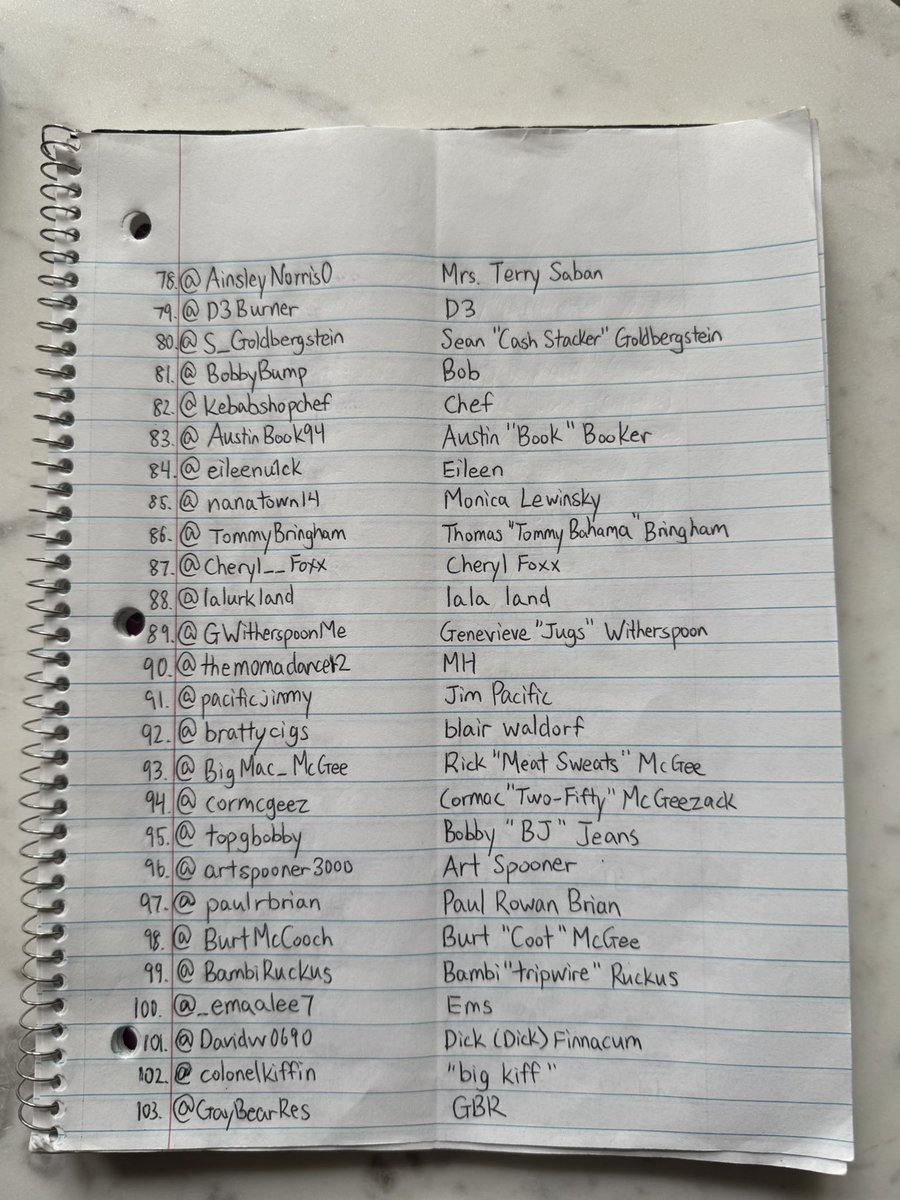 78. @AinsleyNorris0 Mrs. Terry Saban
79. @D3Burner D3
80. @S_Goldbergstein Sean "Cash Stacker" Goldbergstein
81. @BobbyBump Bob
82. @Kebabshopchef Chef
83. @AustinBook94 Austin "Book" Booker
84. @eileenu1ck Eileen
85. @nanatown14 Monica Lewinsky
86. @TommyBringham Thomas "Tommy Bahama" Bringham
87. @Cheryl__Foxx Cheryl Foxx
88. @lalurkland lala land
89. @GWitherspoonMe Genevieve "Jugs" Witherspoon
90. @themomadancer2 MH
91. @pacificjimmy Jim Pacific
92. @brattycigs blair waldorf
93. @BigMac_McGee Rick "Meat Sweats" McGee
94. @cormcgeez Cormac "Two-Fifty" McGeezack
95. @topgbobby Bobby "BJ" Jeans
96. @artspooner3000 Art Spooner
97. @paulrbrian Paul Rowan Brian
98. @BurtMcCooch Burt "Coot" McGee
99. @BambiRuckus Bambi "tripwire" Ruckus
100. @_emaalee7 Ems
101. @Davidw0690 Dick (Dick) Finnacum
102. @colonelkiffin "big kiff"
103. @GayBearRes GBR